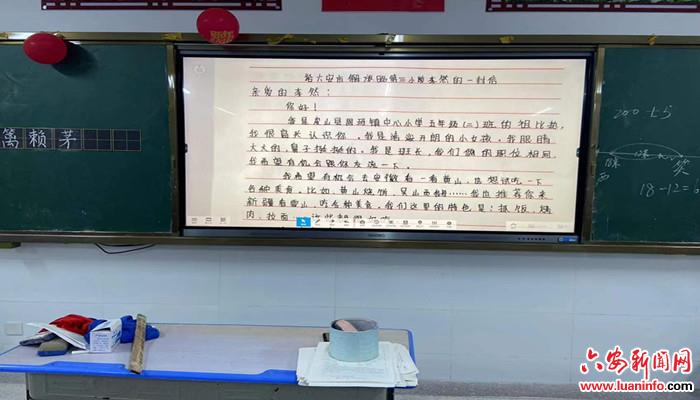 给六安市解放路第三小学李然的一封信
亲爱的李然：
你好！
我是皮山县固玛镇中心小学五年级(二)班的祖比热，
我很高兴认识你。我是活泼开朗的小女孩。我眼睛
大大的，鼻子挺挺的。我是班长，我们俩的职位相同，
我希望有机会跟你交流一下。
我希望有机会去安徽看一看黄山，也想试吃一下
各种美食。比如，黄山烧饼、吴山贡鹅……我也推荐你来
新疆看雪山，吃各种美食。我们这里的特色是：抓饭、烤
肉、拉面
篱赖茅
200
18-12=
六安新闻网
www.luaninfo.com